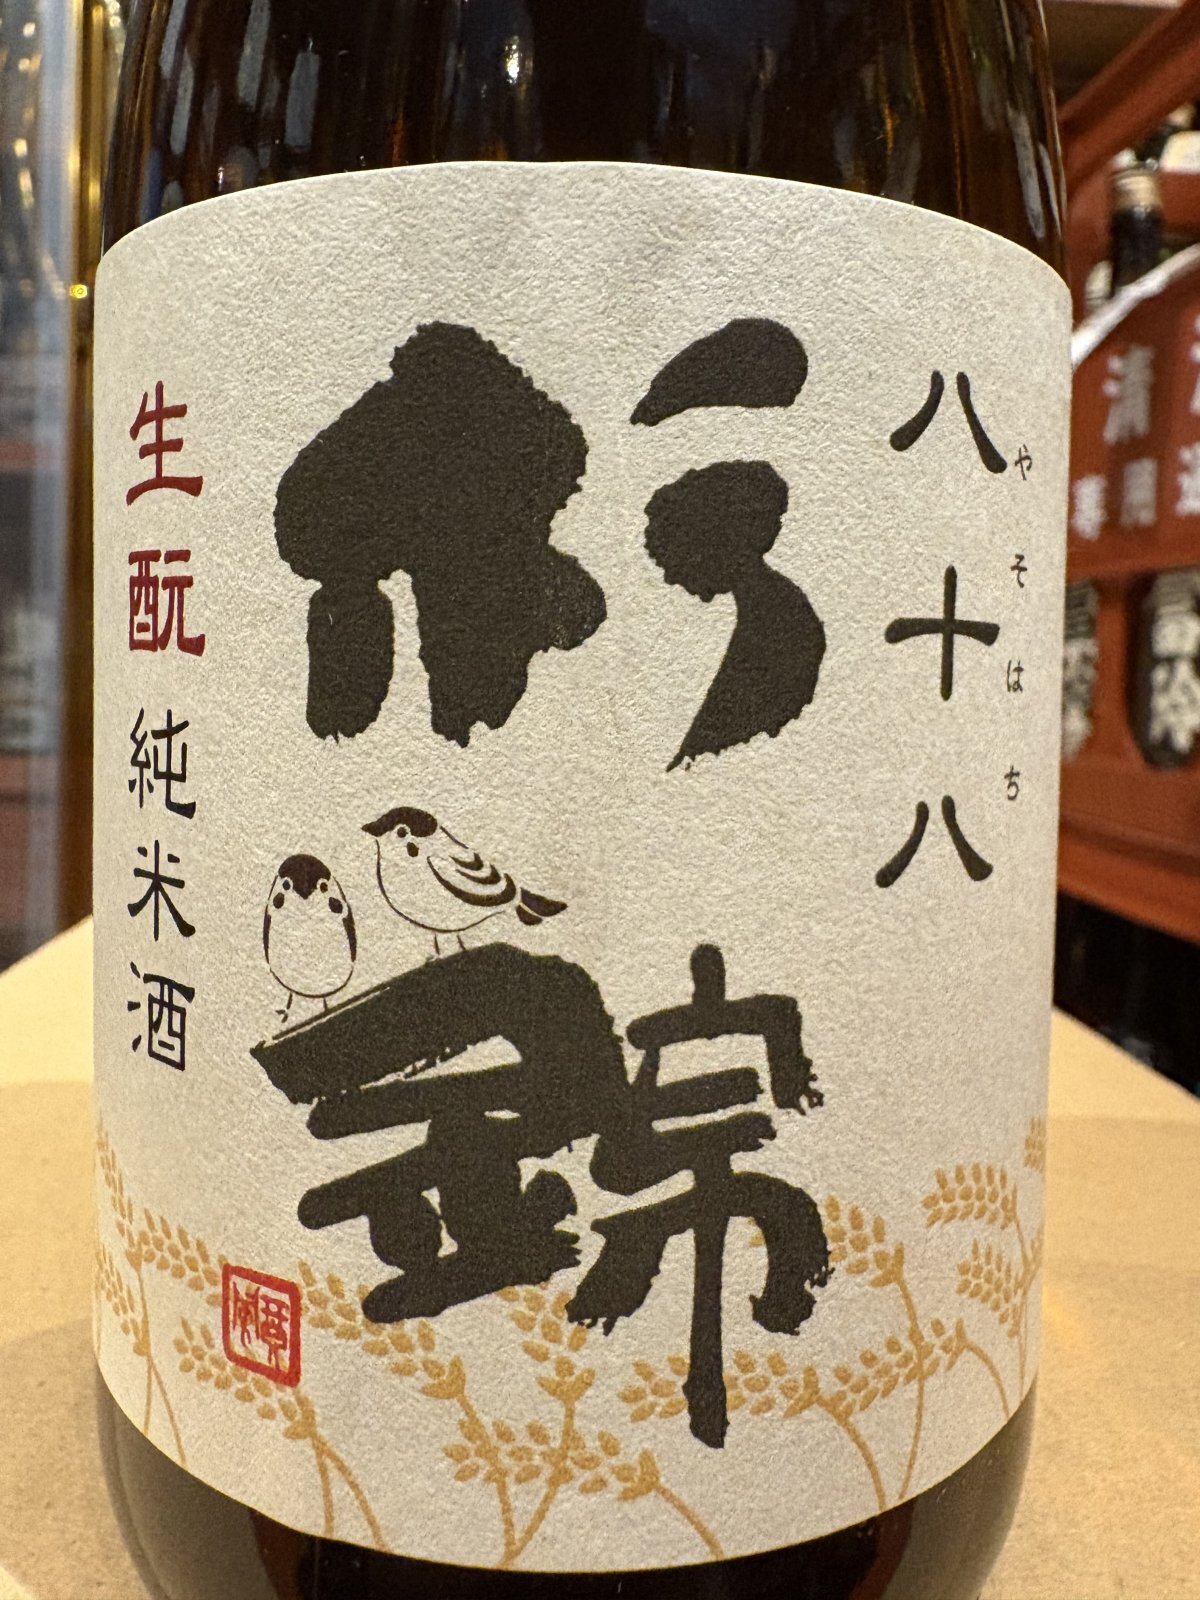 八十八
やそはち
杉錦
生酛 純米酒